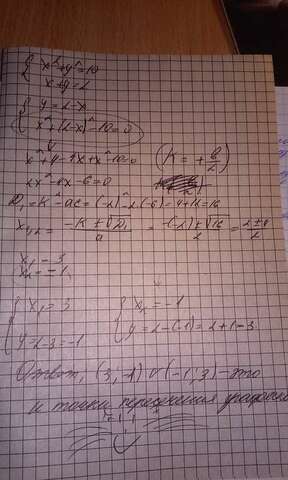 x²+y²=10
x+y=2
y=2-x
x²+(2-x)²-10=0
x²+4-4x+x²-10=0
(K=+b/2)
2x²-4x-6=0
D₁=K²-ac=(-2)²-2(-6)=4+12=16
x₁,₂=(-K±√D₁)/a=(-(-2)±√16)/2=(2±4)/2
x₁=3
x₂=-1
x₁=3
y=2-3=-1
x₂=-1
y=2-(-1)=2+1=3
Ответ, (3;-1) и (-1;3)-это
и точки пересечения